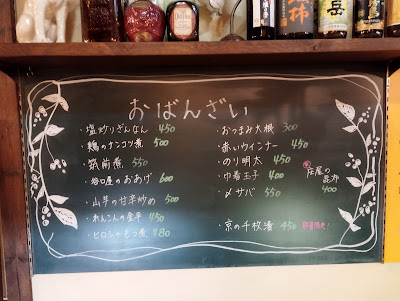 おばんざい
・塩炒りぎんなん 450
・鶏のナンコツ煮 500
・筑前煮 550
・谷口屋のおあげ 600
・山芋の甘辛炒め 500
・れんこんの金平 450
・ピロシのもつ煮 480
・おつまみ大根 300
・赤いウインナー 450
・のり明太 450
・巾着玉子 400
・〆サバ 550
庄屋の
昆布
400
・京の千枚漬 450 数量限定!
柿
岳